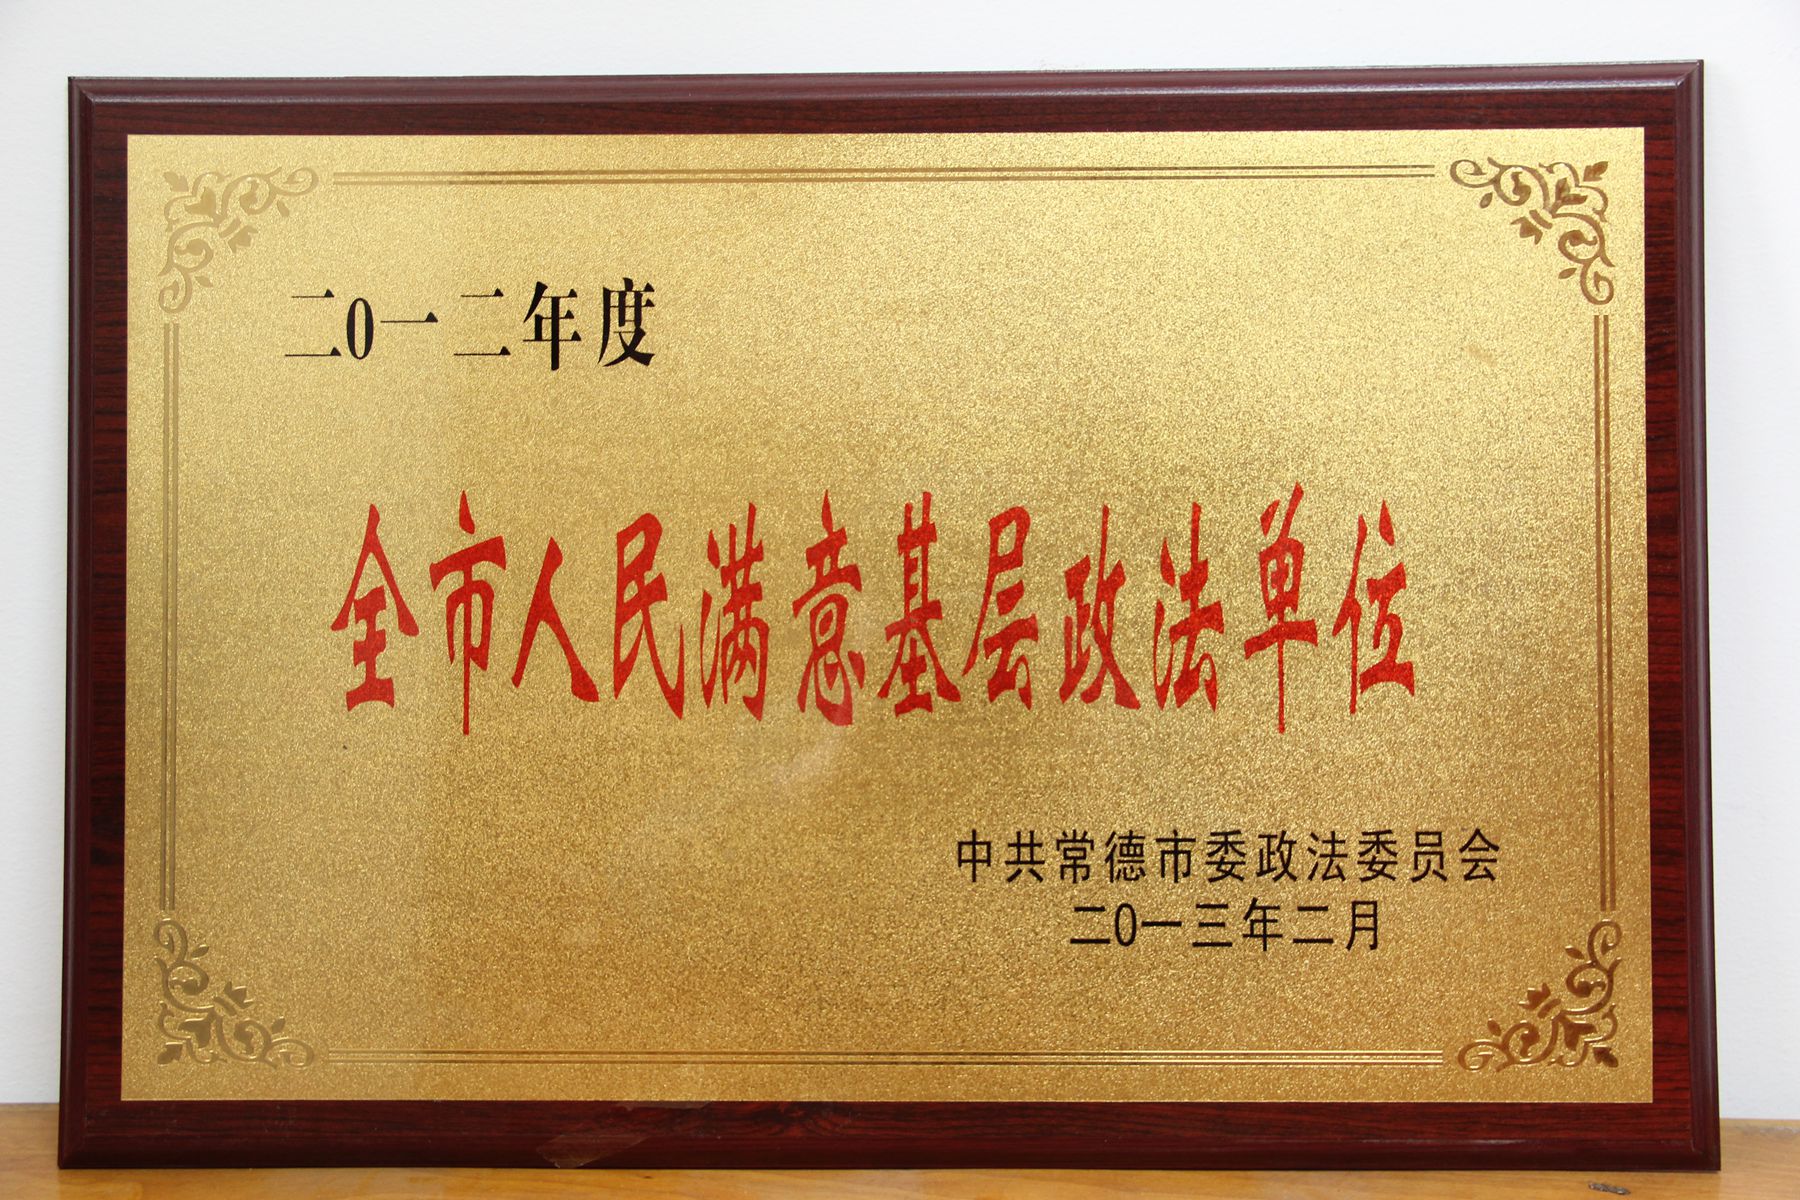 二0一二年度
全市人民满意基层政法单位
中共常德市委政法委员会
二0一三年二月